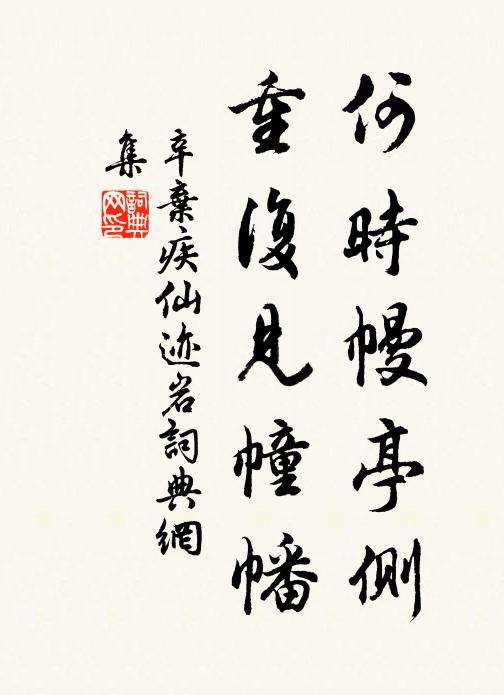 何時幔亭側
重復見幢幡
辛棄疾仙迹岩詞典網
集
詞典
网印